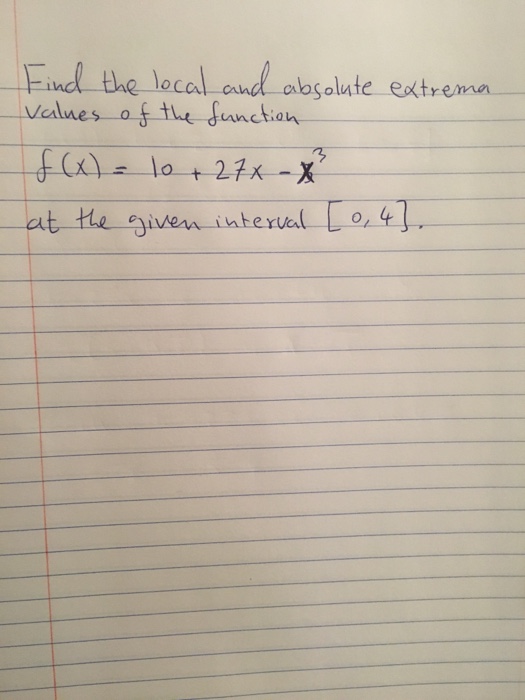 Find the local and absolute extrema
values of the function
f(x) = 10 + 27x - x³
at the given interval [0,4].